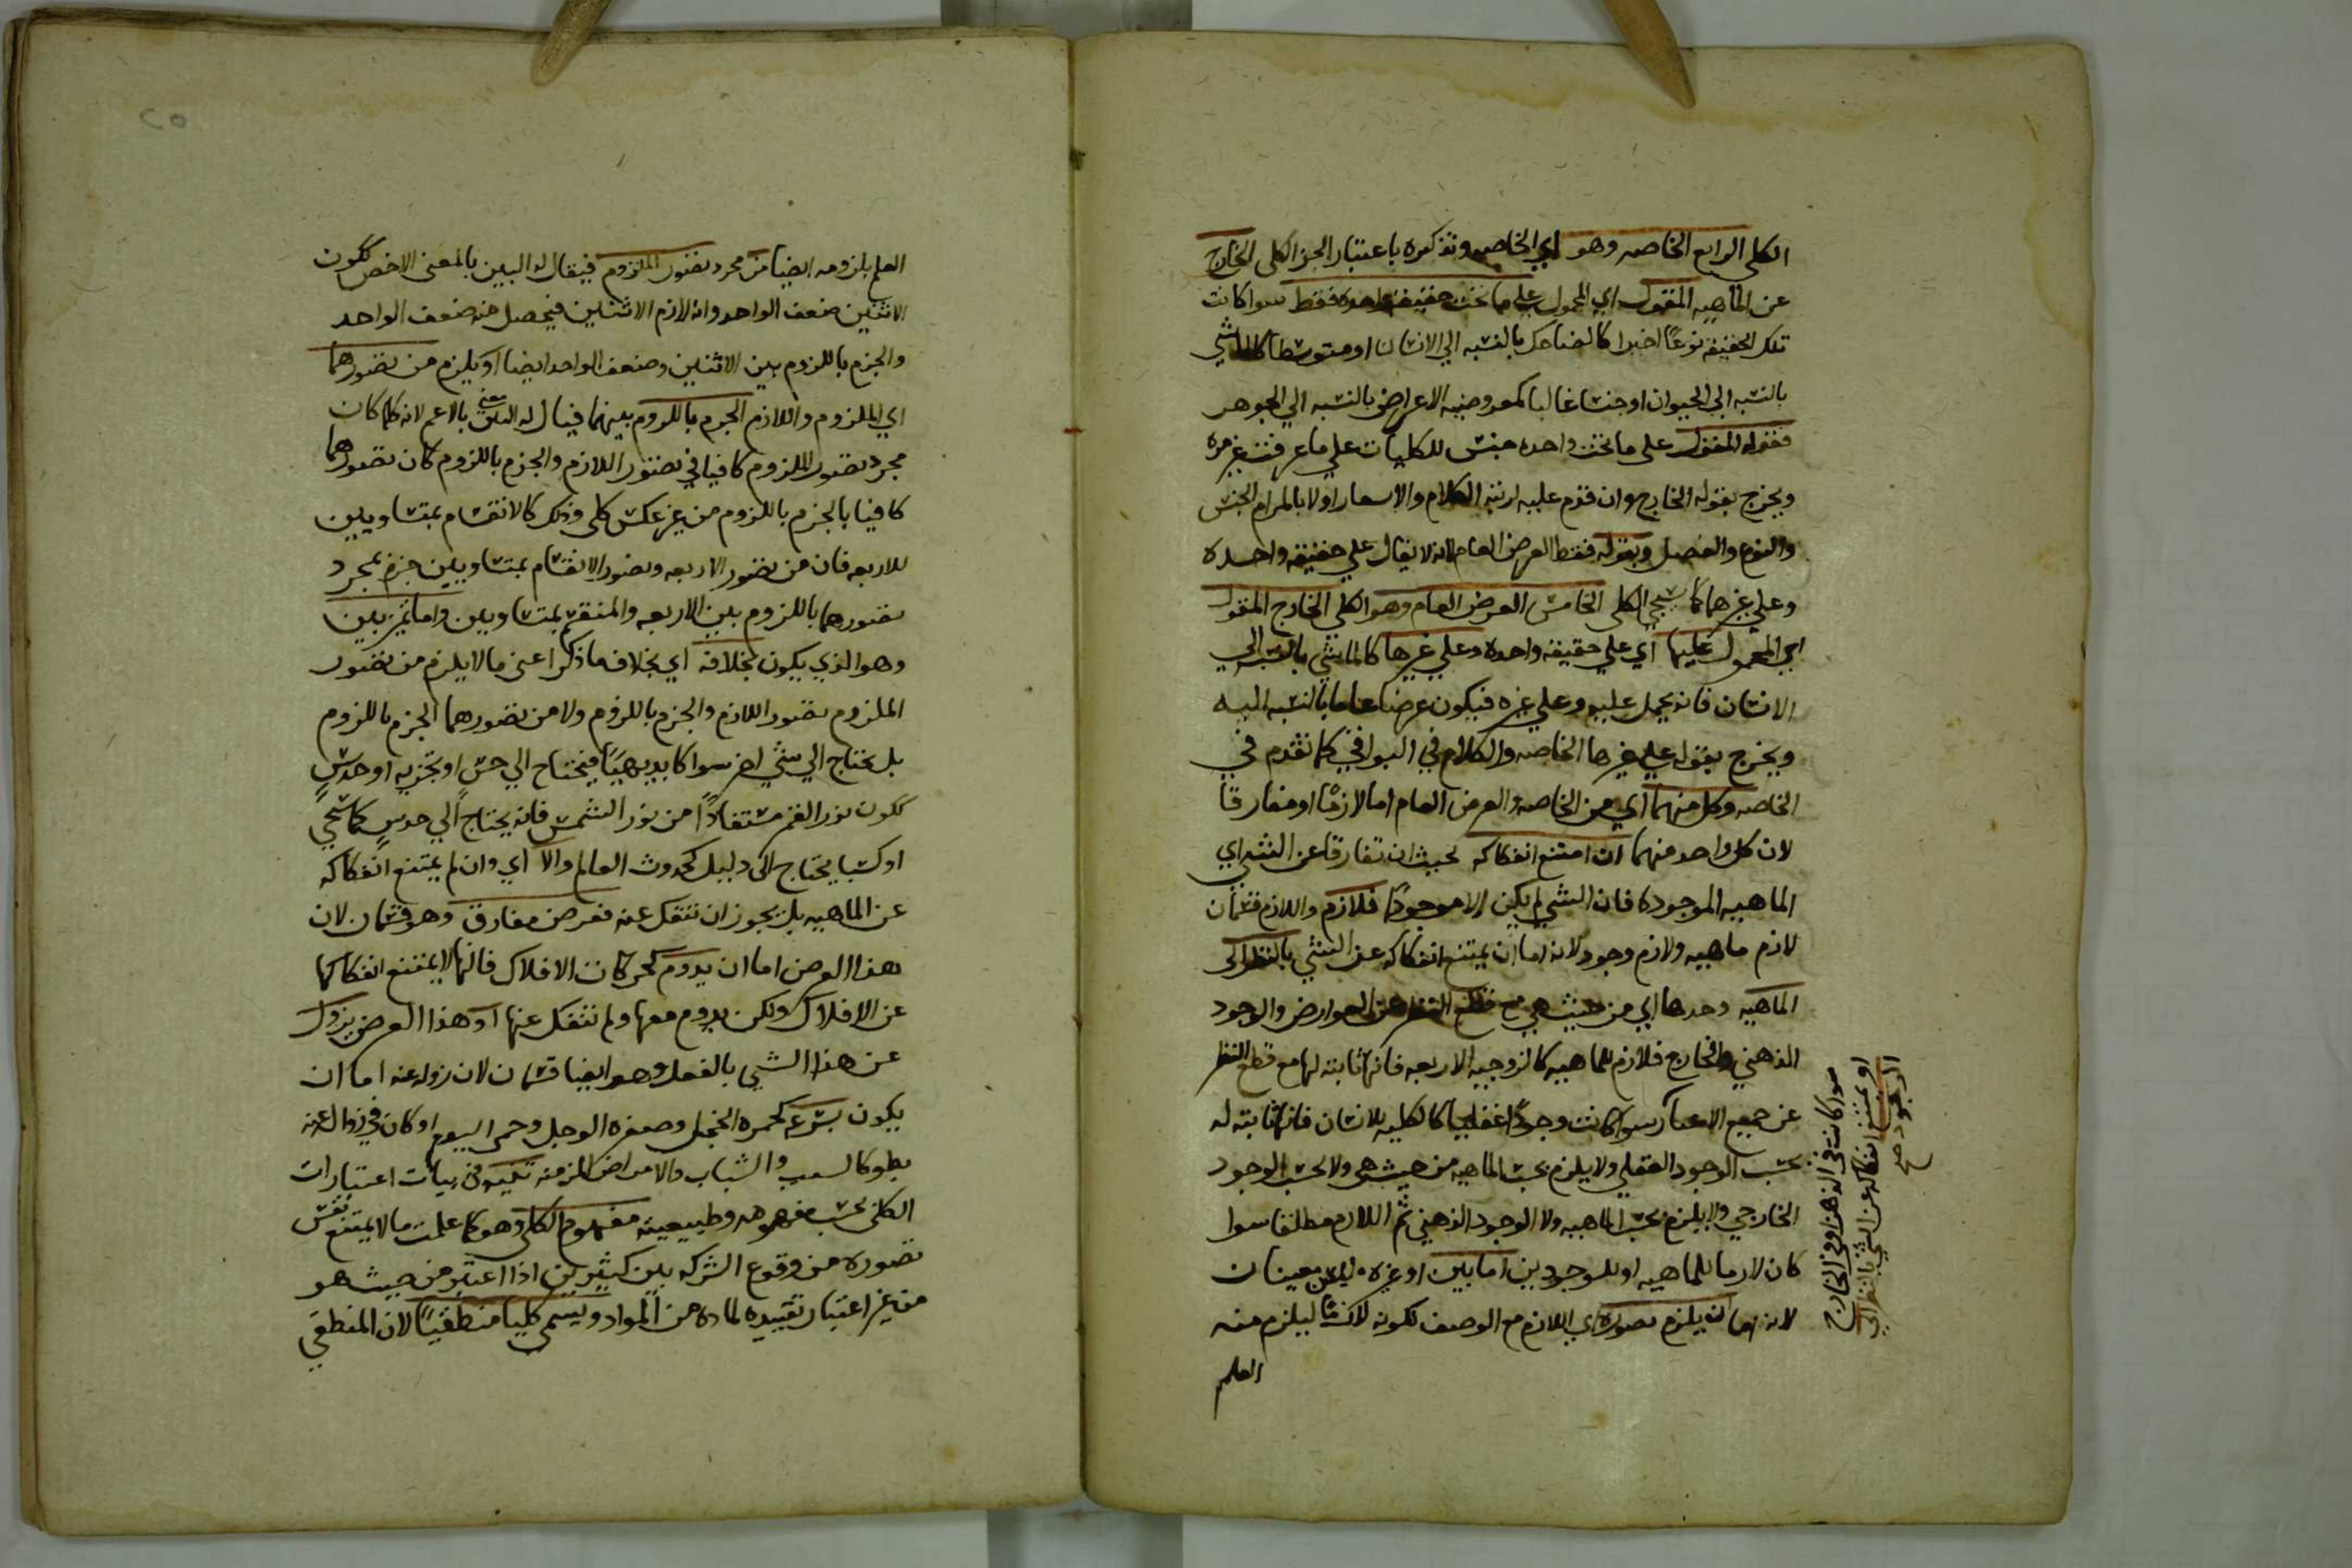 الكلى الرابع الخاصه وهو اي الخاصه وتذكيره باعتبار الجزء الكلى الخارج
عن الماهيه المقول اي المحمول على ما تحت حقيقه واحده فقط سوا كانت
تلك الحقيقه نوعًا اخيرا كالضاحك بالنسبه الى الانسان او متوسطا كالماشي
بالنسبه الي الحيوان او جنسا عاليا كمعروضيه الاعراض بالنسبه الي الجوهر
فقوله المقول على ما تحت واحده جنس للكليات علي ما عرفت غير مره
ويخرج بقوله الخارج وان قدم عليه الكلام اولا بالمرام الجنس
والنوع والفصل وبقوله فقط العرض العام لانه لا يقال علي حقيقه واحده
وعلي غيرها كما سيجي الكلى الخامس العرض العام وهو الكلى الخارج المقول
اي المحمول عليها اي علي حقيقه واحده وعلي غيرها كالماشي بالنسبه الي
الانسان فانه يحمل عليه وعلي غيره فيكون عرضا عاما بالنسبه اليه
ويخرج بقوله علي غيرها الخاصه والكلام في البواقي كما تقدم في
الخاصه وكل منهما اي من الخاصه والعرض العام اما لازمًا او مفارقا
لان كل واحد منهما ان امتنع انفكاكه بحيث ان تفارقا عن الشي اي
الماهيه الموجوده فان الشي لم يكن الا موجودًا فلازم واللازم قسمان
لازم ماهيه ولازم وجود لانه اما ان يمتنع انفكاكه عن الشي بالنظر الى
الماهيه وحدها اي من حيث هي مع قطع النظر عن العوارض والوجود
الذهني والخارج فلازم للماهيه كالزوجيه للاربعه فانها ثابته لها مع قطع النظر
عن جميع الاعتبار سوا كانت وجودًا عقليا كالكليه للانسان فانها ثابته له
بحسب الوجود العقلي ولا يلزم بحسب الماهيه من حيث هى ولا بحسب الوجود
الخارجي ولا يلزم بحسب الماهيه ولا الوجود الذهني ثم اللازم مطلقا سوا
كان لازما للماهيه او للوجودين اما بين او غيره معينان
لانه اما ان يلزم تصوره اي اللازم مع الوصف لكونه لازمًا ليلزم منه
العلم
او يمتنع انفكاكه عن الشي بالنظر الى
الوجود صح
سوا كانت فى الذهن او فى الخارج
٢٥
العلم بلزومه ايضا من مجرد تصور الملزوم فيقال له البين بالمعنى الاخص ككون
الاثنين ضعف الواحد وانه لازم الاثنين فيحصل منه ضعف الواحد
والجزم باللزوم بين الاثنين وضعف الواحد ايضا او يلزم من تصورهما
اي الملزوم واللازم الجزم باللزوم بينهما فيقال له البين بالاعم لانه كلما كان
مجرد تصور الملزوم كافيا في تصور اللازم والجزم باللزوم كان تصورهما
كافيا بالجزم باللزوم من غير عكس كلى وذلك كالانقسام بمتساويين
للاربعه فان من تصور الاربعه وتصور الانقسام بمتساويين جزم بمجرد
تصورهما باللزوم بين الاربعه والمنقسم بمتساويين واما غير بين
وهو الذي يكون بخلافه اي بخلاف ما ذكر اعنى ما لا يلزم من تصور
الملزوم تصور اللازم والجزم باللزوم ولا من تصورهما الجزم باللزوم
بل يحتاج الي شي اخر سوا كا بديهيًا فيحتاج الي حس او تجربه او حدسٍ
ككون نور القمر مستفادًا من نور الشمس فانه يحتاج الي حدسٍ كما سيجي
او كسبيا يحتاج الى دليل كحدوث العالم والا اي وان لم يمتنع انفكاكه
عن الماهيه بل يجوز ان تنفك عنه فعرض مفارق وهو قسمان لان
هذا العرض اما ان يدوم كحركات الافلاك فانها لا يمتنع انفكاكها
عن الافلاك ولكن يدوم معها ولم تنفك عنها او هذا العرض يزول
عن هذا الشي بالفعل وهو ايضا قسمان لان زوله عنه اما ان
يكون بسرعه كحمره الخجل وصفره الوجل وحمى اليوم او كان في زواله عنه
بطو كالشيب والشباب والامراض المزمنه تنبيه فى بيان اعتبارات
الكلى بحسب مفهومه وطبيعيته مفهوم الكلى وهو كما علمت ما لا يمتنع نفس
تصوره من وقوع الشركه بين كثيرين اذا اعتبر من حيث هو
من غير اعتبار تقييده لماده من المواد ويسمى كليا منطقيًا لان المنطقي